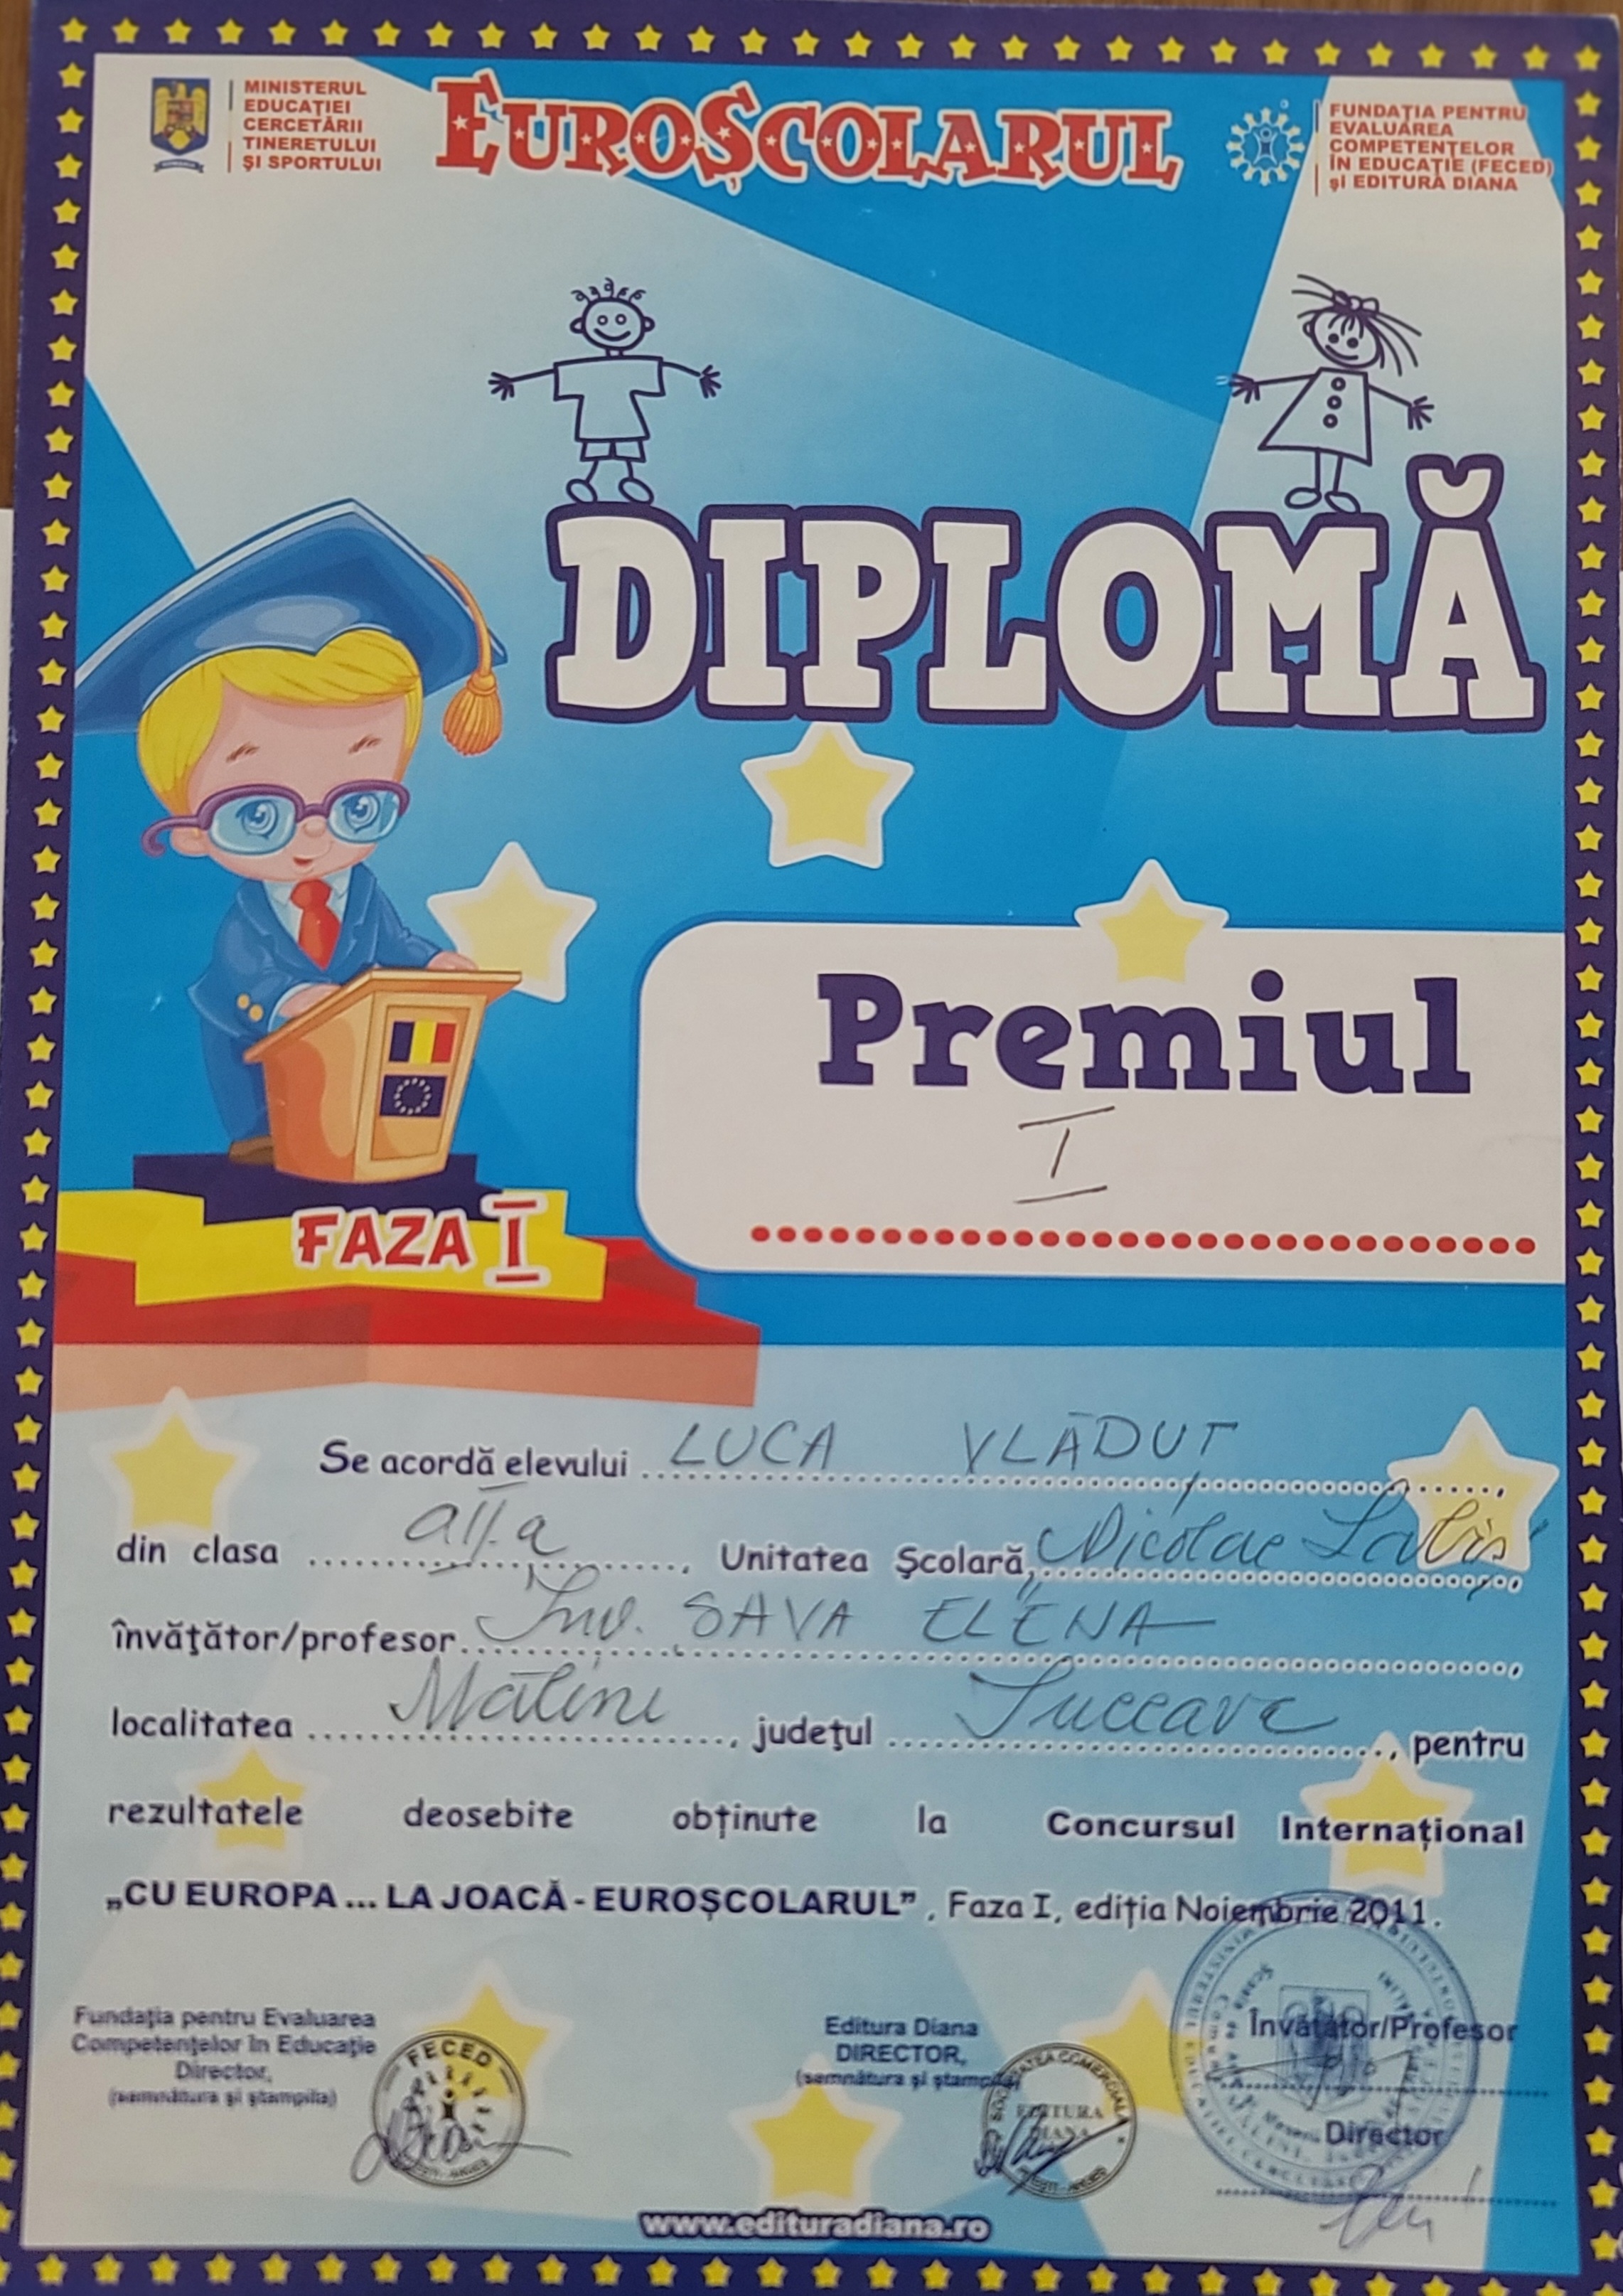 MINISTERUL
EDUCAȚIEI
CERCETĂRII
TINERETULUI
ȘI SPORTULUI
EUROȘCOLARUL
FUNDAȚIA PENTRU
EVALUAREA
COMPETENȚELOR
ÎN EDUCAȚIE (FECED)
și EDITURA DIANA
DIPLOMĂ
Premiul
I
FAZA I
Se acordă elevului LUCA VLĂDUȚ,
din clasa a II-a, Unitatea Școlară, "Nicolae Labiș"
învățător/profesor Înv. SAVA ELENA,
localitatea Mălini, județul Suceava, pentru
rezultatele deosebite obținute la Concursul Internațional
„CU EUROPA... LA JOACĂ - EUROȘCOLARUL”, Faza I, ediția Noiembrie 2011.
Fundația pentru Evaluarea
Competențelor în Educație
Director,
(semnătura și ștampila)
FECED
Editura Diana
DIRECTOR,
(semnătura și ștampila)
SOCIETATEA COMERCIALA
EDITURA
DIANA
Învățător/Profesor
Director
www.edituradiana.ro